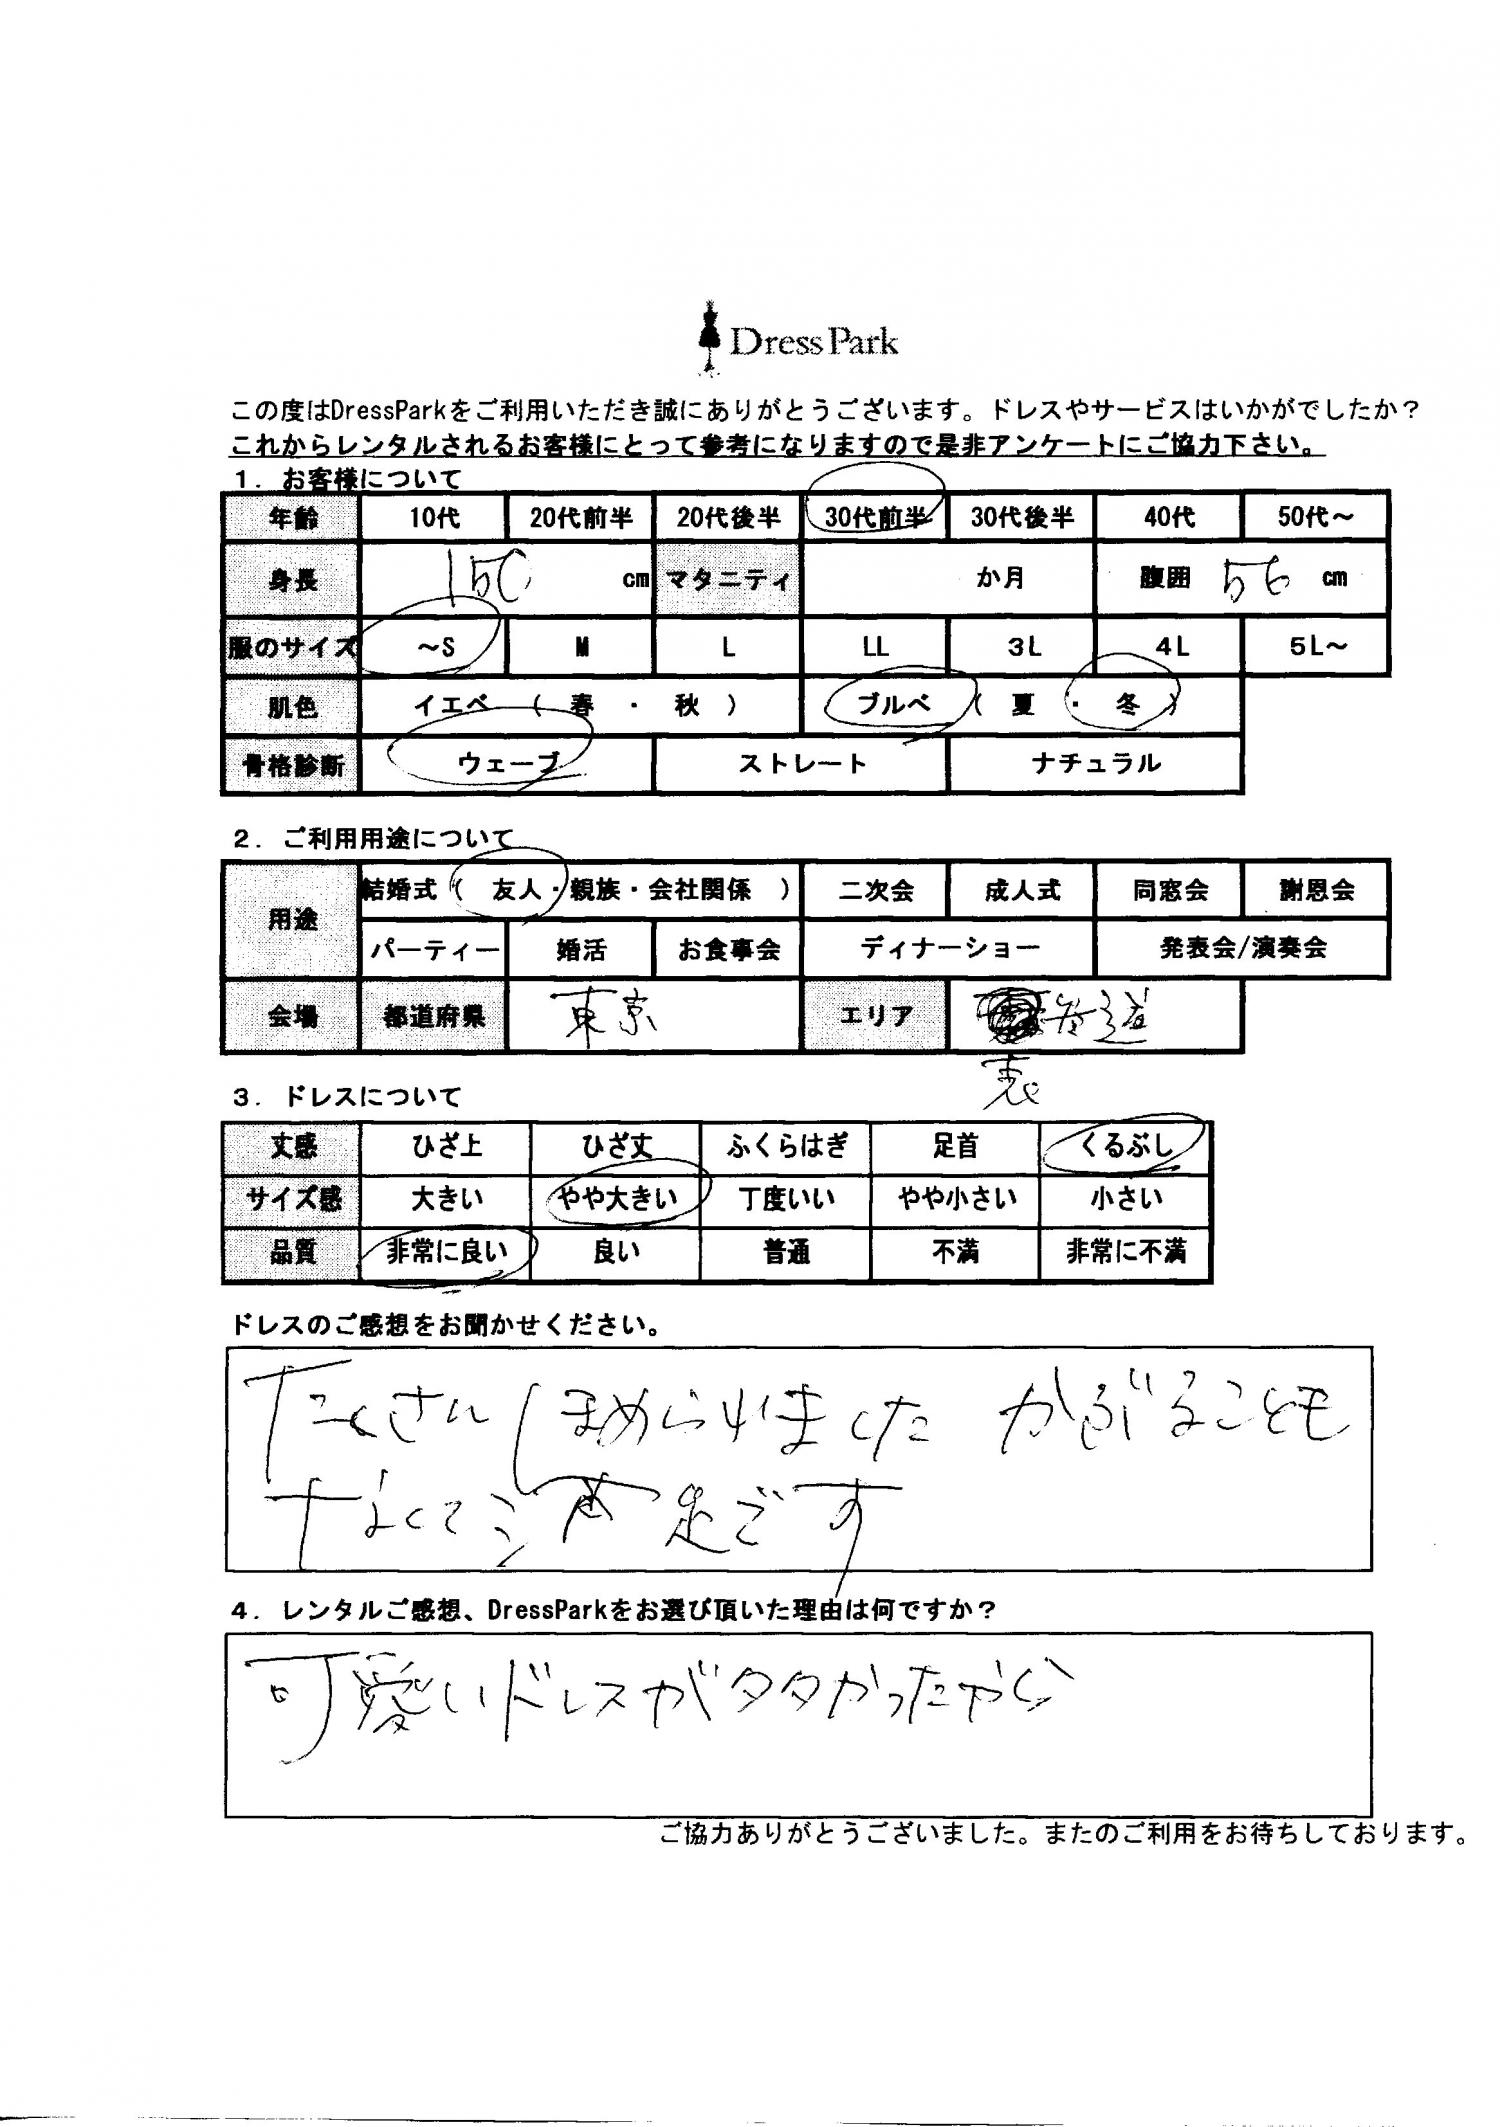 Dress Park
この度はDressParkをご利用いただき誠にありがとうございます。ドレスやサービスはいかがでしたか？
これからレンタルされるお客様にとって参考になりますので是非アンケートにご協力下さい。
1．お客様について
年齢 10代 20代前半 20代後半 30代前半 30代後半 40代 50代～
身長 150 cm マタニティ か月 腹囲 56 cm
服のサイズ ～S M L LL 3L 4L 5L～
肌色 イエベ （ 春 ・ 秋 ） ブルベ （ 夏 ・ 冬 ）
骨格診断 ウェーブ ストレート ナチュラル
2．ご利用用途について
用途 結婚式（ 友人・親族・会社関係 ） 二次会 成人式 同窓会 謝恩会
パーティー 婚活 お食事会 ディナーショー 発表会/演奏会
会場 都道府県 東京 エリア 参道
表
3．ドレスについて
丈感 ひざ上 ひざ丈 ふくらはぎ 足首 くるぶし
サイズ感 大きい やや大きい 丁度いい やや小さい 小さい
品質 非常に良い 良い 普通 不満 非常に不満
ドレスのご感想をお聞かせください。
たくさんほめられました かぶることも
なくて満足です
4．レンタルご感想、DressParkをお選び頂いた理由は何ですか？
可愛いドレスが多かったから
ご協力ありがとうございました。またのご利用をお待ちしております。